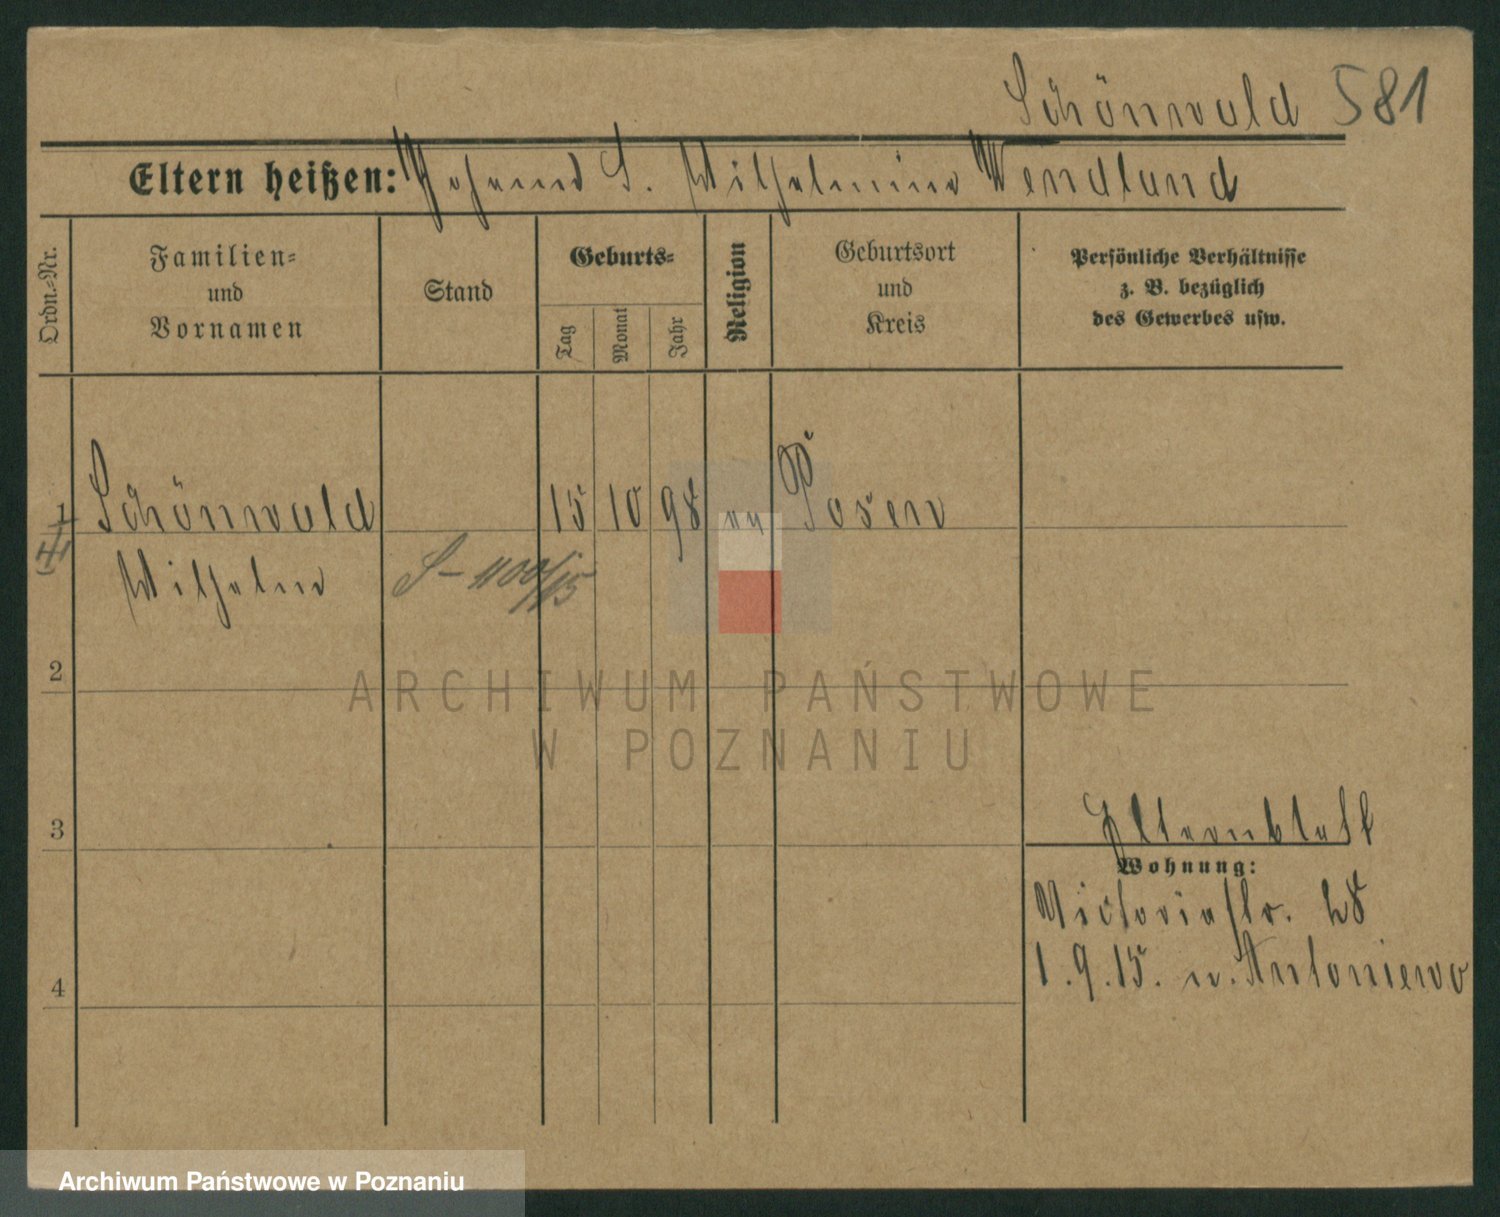 Schönwald 581
Eltern heißen: Johann S. Wilhelmine Wendland
Ordn.=Nr.
Familien=
und
Vornamen
Stand
Geburts=
Tag
Monat
Jahr
Religion
Geburtsort
und
Kreis
Persönliche Verhältnisse
z. B. bezüglich
des Gewerbes usw.
1 Schönwald 15 10 98 ev Posen
Wilhelm
S – 1100/15
2
ARCHIWUM PAŃSTWOWE
W POZNANIU
3
Elternblatt
Wohnung:
Victoriastr. 28
1.9.15. n. Antoniewo
4
Archiwum Państwowe w Poznaniu